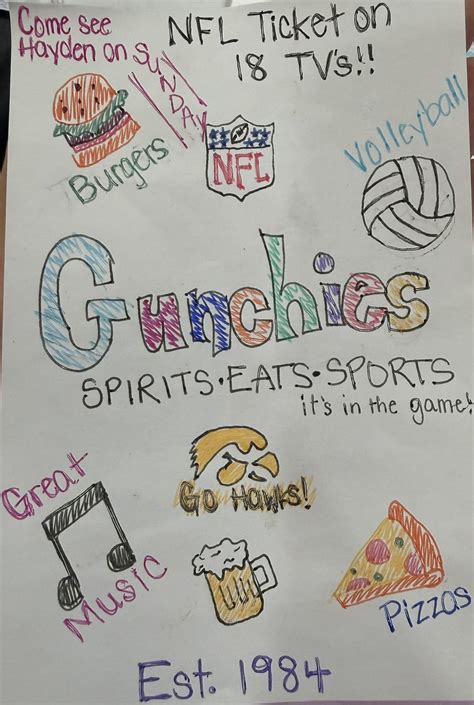 Come see
Hayden on
SUNDAY
NFL TICKET ON
18 TV's!!
Burgers
NFL
Volleyball
Gunchies
SPIRITS·EATS·SPORTS
it's in the game!
Great
Music
GO HAWKS!
Pizzas
Est. 1984